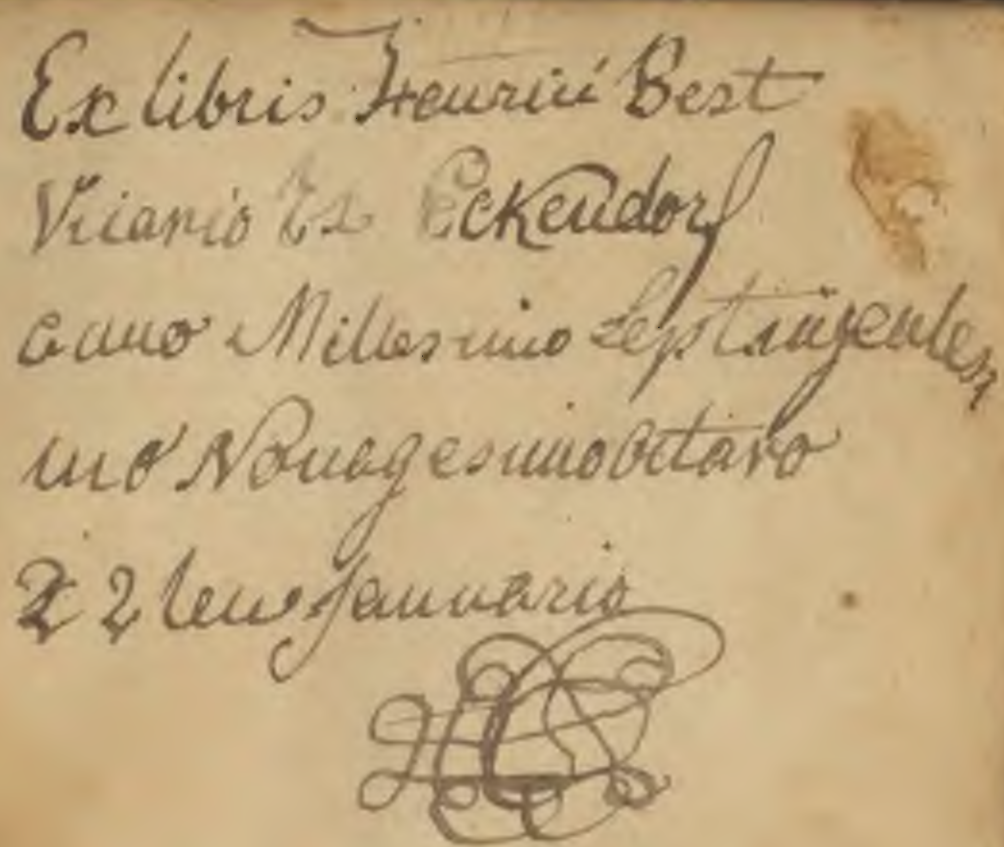 Ex libris Henrici Best
Vicario Ex Eckendorf
anno Millesimo Septingentes
imo Nonagesimo Octavo
22 ten Januario